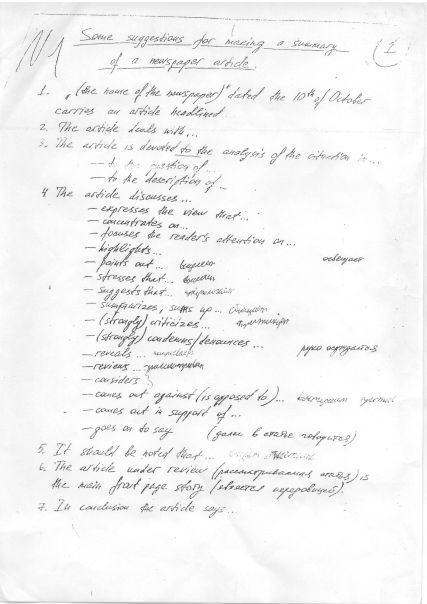 N1
Some suggestions for making a summary
of a newspaper article.
1. „(the name of the newspaper)" dated the 10th of October
carries an article headlined
2. The article deals with...
3. The article is devoted to the analysis of the situation in...
— to the question of...
— to the description of...
4. The article discusses...
— expresses the view that...
— concentrates on...
— focuses the reader's attention on...
— highlights... освещает
— points out...
— stresses that...
— suggests that...
— summarizes, sums up...
— (strongly) criticizes...
— (strongly) condemns/denounces...
— reveals...
— reviews...
— considers
— comes out against (is opposed to)...
— comes out in support of...
— goes on to say (далее в статье говорится)
5. It should be noted that...
6. The article under review (рассматриваемая статья) is
the main front page story (является передовицей).
7. In conclusion the article says...